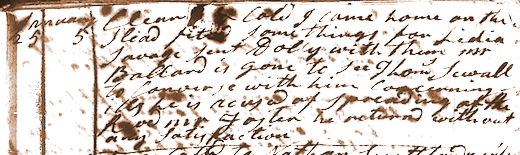 January
25 5 Clear & Cold I came home on the ice
Slead fited some things for Lidia
Savage sent Dolly with them mr
Ballard is gone to see Thoms Sewall
to Converse with him Concerning
he is acused of spreading of the
Revd mr Foster he returned without
any Satisfaction